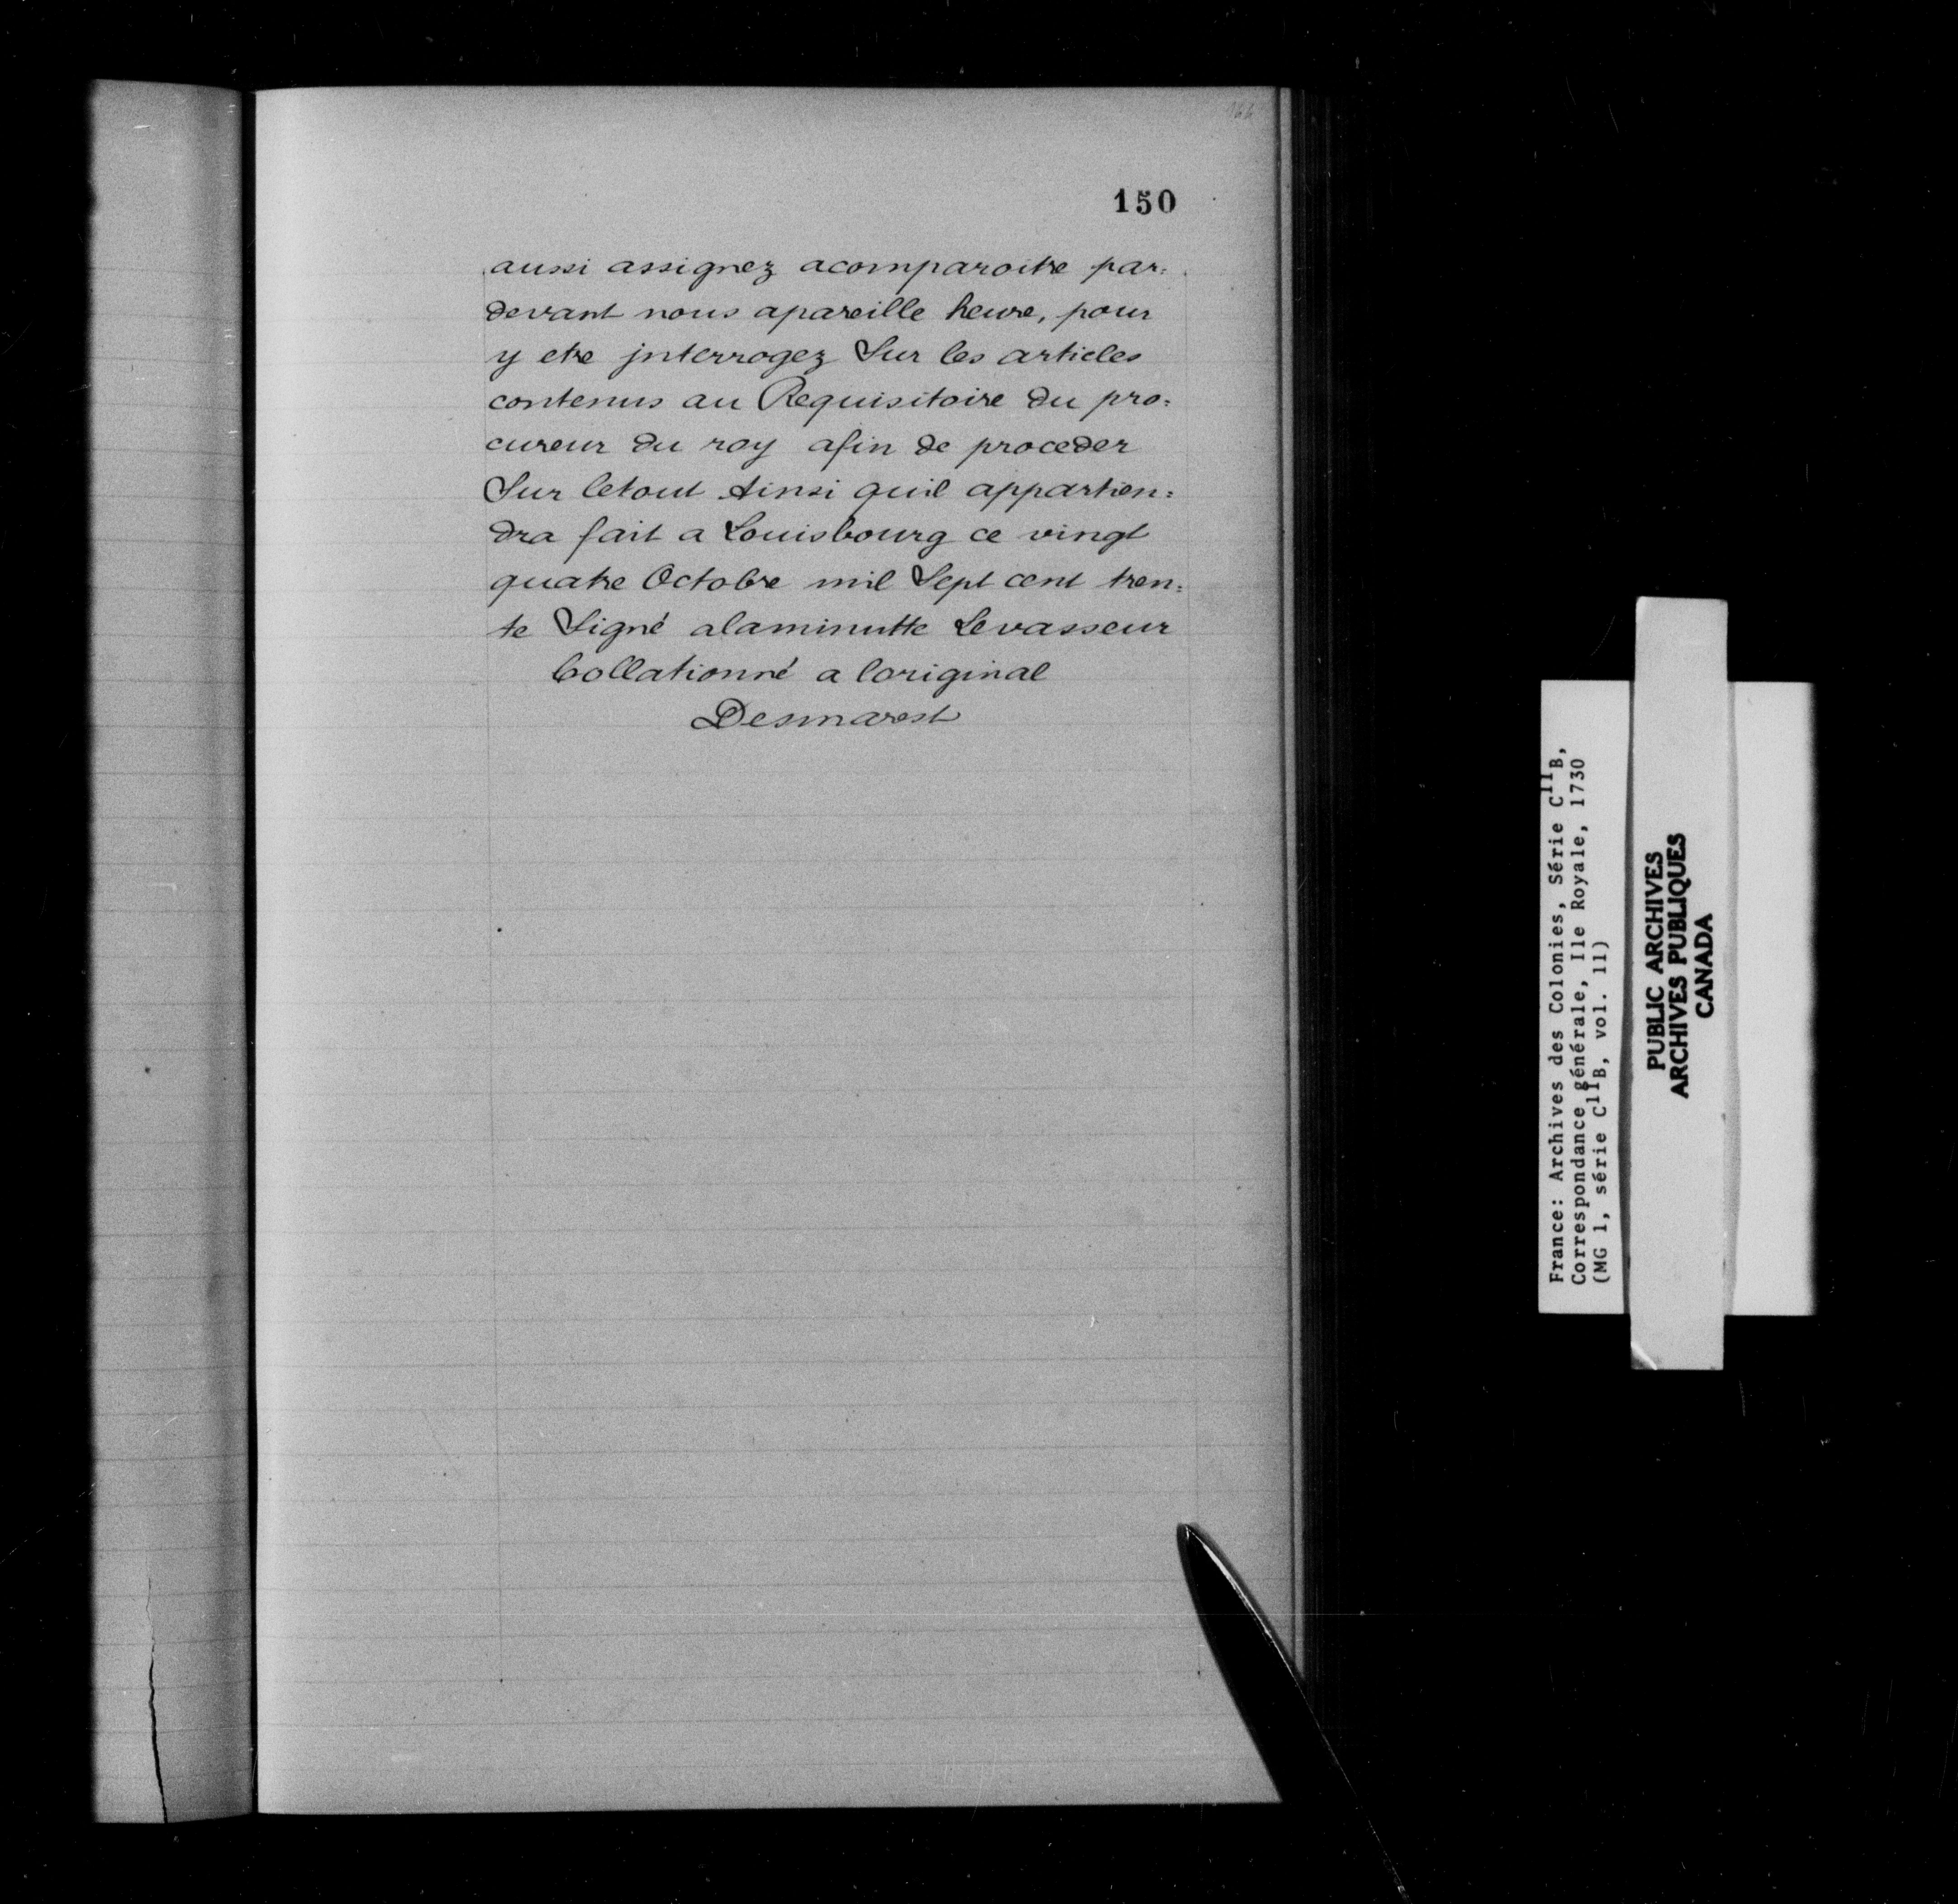 166
150
aussi assignez acomparoitre par=
devant nous apareille heure, pour
y etre jnterrogez Sur les articles
contenus au Requisitoire du pro=
cureur du roy afin de proceder
Sur letout Ainsi quil appartien=
dra fait a Louisbourg ce vingt
quatre Octobre mil Sept cent tren=
te Signé alaminutte Levasseur
Collationné a loriginal
Desmarest
France: Archives des Colonies, Série C11B,
Correspondance générale, Ile Royale, 1730
(MG 1, série C11B, vol. 11)
PUBLIC ARCHIVES
ARCHIVES PUBLIQUES
CANADA